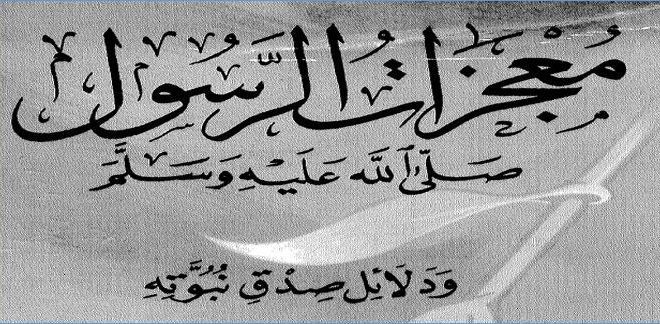 مُعْجِزَاتُ الرَّسُولِ
صَلَّى ٱللَّه عَلَيْهِ وَسَلَّمَ
وَدَلَائِل صِدْقِ نُبُوَّتِهِ